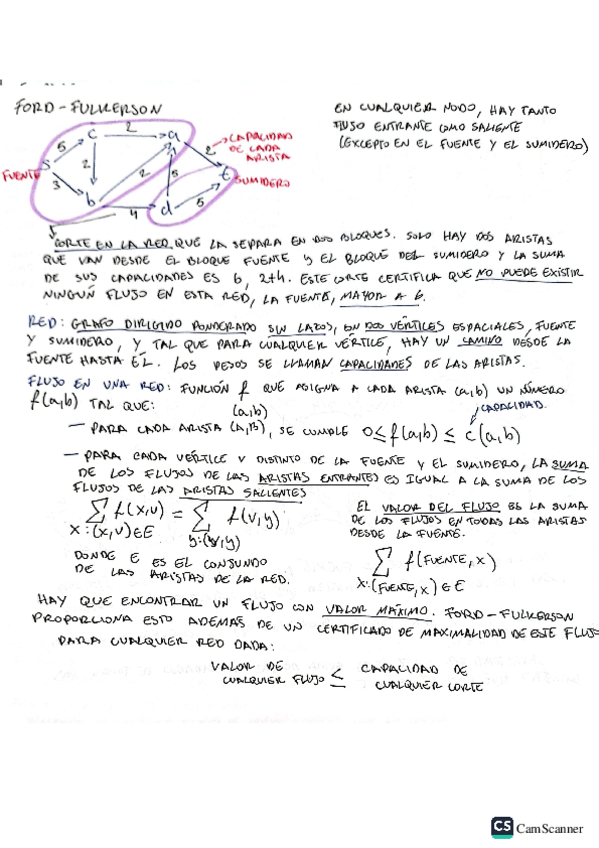 FORD-FULKERSON
EN CUALQUIER NODO, HAY TANTO
FLUJO ENTRANTE COMO SALIENTE
(EXCEPTO EN EL FUENTE Y EL SUMIDERO)
C 2 a
5 2 CAPACIDAD
DE CADA
ARISTA
S 2 2 5 t
FUENTE SUMIDERO
3 b d 5
4
CORTE EN LA RED QUE LA SEPARA EN DOS BLOQUES. SOLO HAY DOS ARISTAS
QUE VAN DESDE EL BLOQUE FUENTE Y EL BLOQUE DEL SUMIDERO Y LA SUMA
DE SUS CAPACIDADES ES 6, 2+4. ESTE CORTE CERTIFICA QUE NO PUEDE EXISTIR
NINGUN FLUJO EN ESTA RED, LA FUENTE, MAYOR A 6.
RED: GRAFO DIRIGIDO PONDERADO SIN LAZOS, EN DOS VÉRTICES ESPACIALES, FUENTE
Y SUMIDERO, Y TAL QUE PARA CUALQUIER VÉRTICE, HAY UN CAMINO DESDE LA
FUENTE HASTA ÉL. LOS PESOS SE LLAMAN CAPACIDADES DE LAS ARISTAS.
FLUJO EN UNA RED: FUNCIÓN f QUE ASIGNA A CADA ARISTA (a,b) UN NÚMERO
f(a,b) TAL QUE:
(a,b) CAPACIDAD.
— PARA CADA ARISTA (A,B), SE CUMPLE 0≤f(a,b) ≤ c(a,b)
— PARA CADA VÉRTICE V DISTINTO DE LA FUENTE Y EL SUMIDERO, LA SUMA
DE LOS FLUJOS DE LAS ARISTAS ENTRANTES ES IGUAL A LA SUMA DE LOS
FLUJOS DE LAS ARISTAS SALIENTES
∑ f(x,v) = ∑ f(v,y)
x:(x,v)∈E y:(v,y)
EL VALOR DEL FLUJO ES LA SUMA
DE LOS FLUJOS EN TODAS LAS ARISTAS
DESDE LA FUENTE.
∑ f(FUENTE, x)
x:(FUENTE, x) ∈ E
DONDE E ES EL CONJUNDO
DE LAS ARISTAS DE LA RED.
HAY QUE ENCONTRAR UN FLUJO CON VALOR MÁXIMO. FORD-FULKERSON
PROPORCIONA ESTO ADEMÁS DE UN CERTIFICADO DE MAXIMALIDAD DE ESTE FLUJO
PARA CUALQUIER RED DADA:
VALOR DE
CUALQUIER FLUJO ≤ CAPACIDAD DE
CUALQUIER CORTE
CS CamScanner